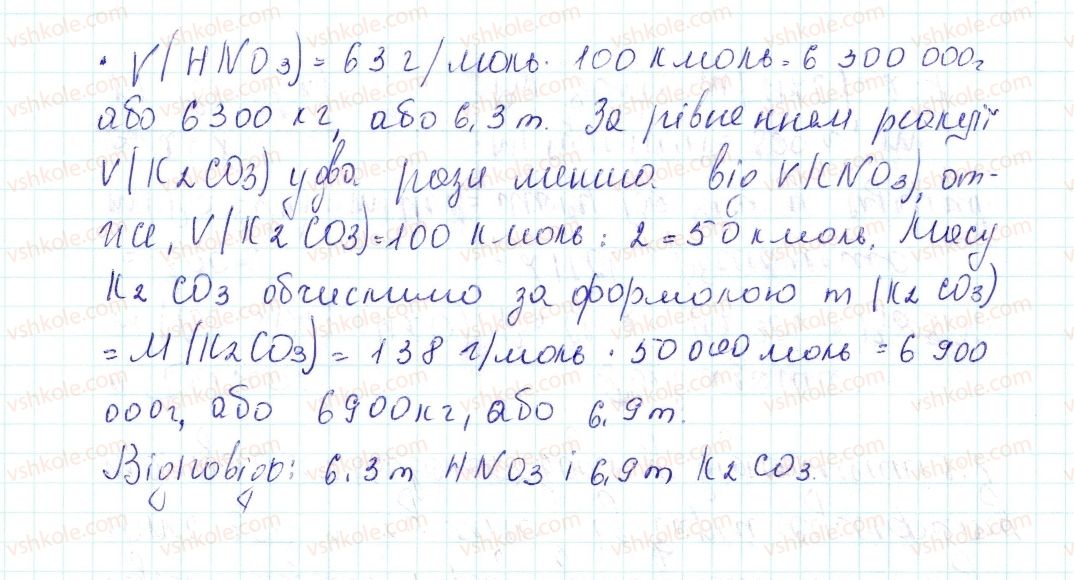 · V(HNO3) = 63 г/моль · 100 кмоль = 6 300 000г
або 6300 кг, або 6,3т. За рівненням реакції
V(K2CO3) у два рази менша від V(KNO3), от-
же, V(K2CO3)=100 кмоль : 2 = 50 кмоль. Масу
K2CO3 обчислимо за формолою m (K2CO3)
= M(K2CO3) = 138 г/моль · 50 000 моль = 6 900
000г, або 6900кг, або 6,9т.
Відповідь: 6.3т HNO3 і 6,9т K2CO3.